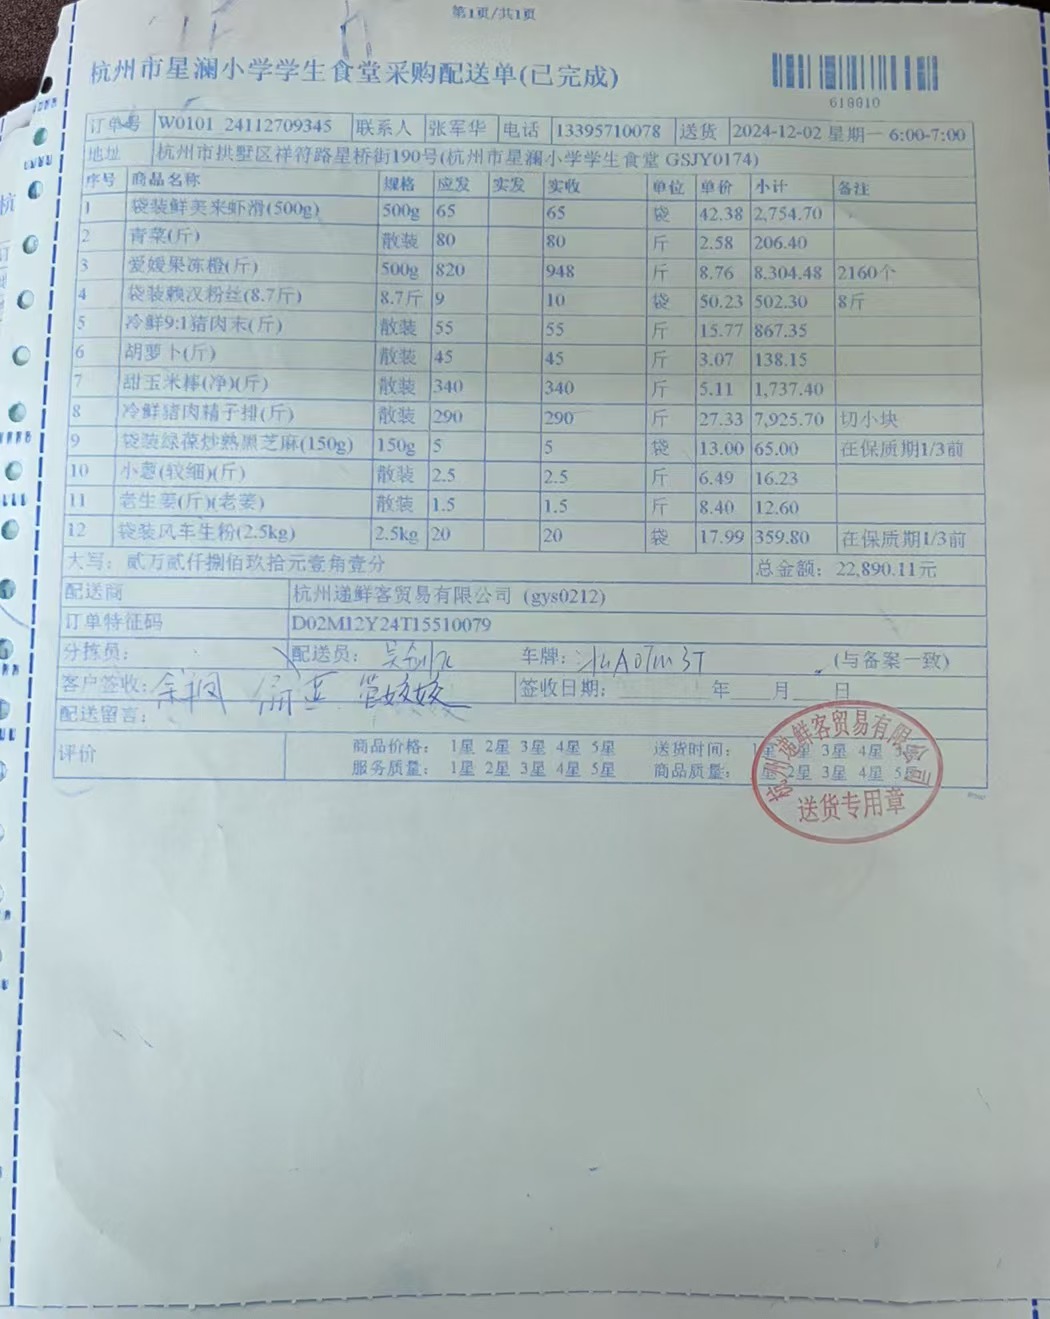 第1页/共1页
杭州市星澜小学学生食堂采购配送单(已完成)
618810
订单号 W0101 24112709345 联系人 张军华 电话 13395710078 送货 2024-12-02 星期一 6:00-7:00
地址 杭州市拱墅区祥符路星桥街190号(杭州市星澜小学学生食堂 GSJY0174)
序号 商品名称 规格 应发 实发 实收 单位 单价 小计 备注
1 袋装鲜美来虾滑(500g) 500g 65 65 袋 42.38 2,754.70
2 青菜(斤) 散装 80 80 斤 2.58 206.40
3 爱媛果冻橙(斤) 500g 820 948 斤 8.76 8,304.48 2160个
4 袋装赖汉粉丝(8.7斤) 8.7斤 9 10 袋 50.23 502.30 8斤
5 冷鲜9:1猪肉末(斤) 散装 55 55 斤 15.77 867.35
6 胡萝卜(斤) 散装 45 45 斤 3.07 138.15
7 甜玉米棒(净)(斤) 散装 340 340 斤 5.11 1,737.40
8 冷鲜猪肉精子排(斤) 散装 290 290 斤 27.33 7,925.70 切小块
9 袋装绿葆炒熟黑芝麻(150g) 150g 5 5 袋 13.00 65.00 在保质期1/3前
10 小葱(较细)(斤) 散装 2.5 2.5 斤 6.49 16.23
11 老生姜(斤)(老姜) 散装 1.5 1.5 斤 8.40 12.60
12 袋装风车生粉(2.5kg) 2.5kg 20 20 袋 17.99 359.80 在保质期1/3前
大写: 贰万贰仟捌佰玖拾元壹角壹分 总金额: 22,890.11元
配送商 杭州递鲜客贸易有限公司 (gys0212)
订单特征码 D02M12Y24T15510079
分拣员: 配送员: 车牌: (与备案一致)
客户签收: 管姣姣 签收日期: 年 月 日
配送留言:
评价 商品价格: 1星 2星 3星 4星 5星 送货时间: 1星 2星 3星 4星 5星
服务质量: 1星 2星 3星 4星 5星 商品质量: 星 2星 3星 4星 5星
杭州递鲜客贸易有限公司
送货专用章